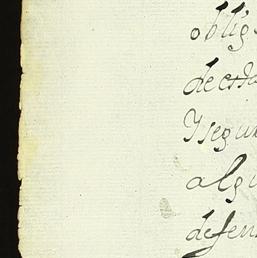 oblig
decada
Y segun
algu
defen